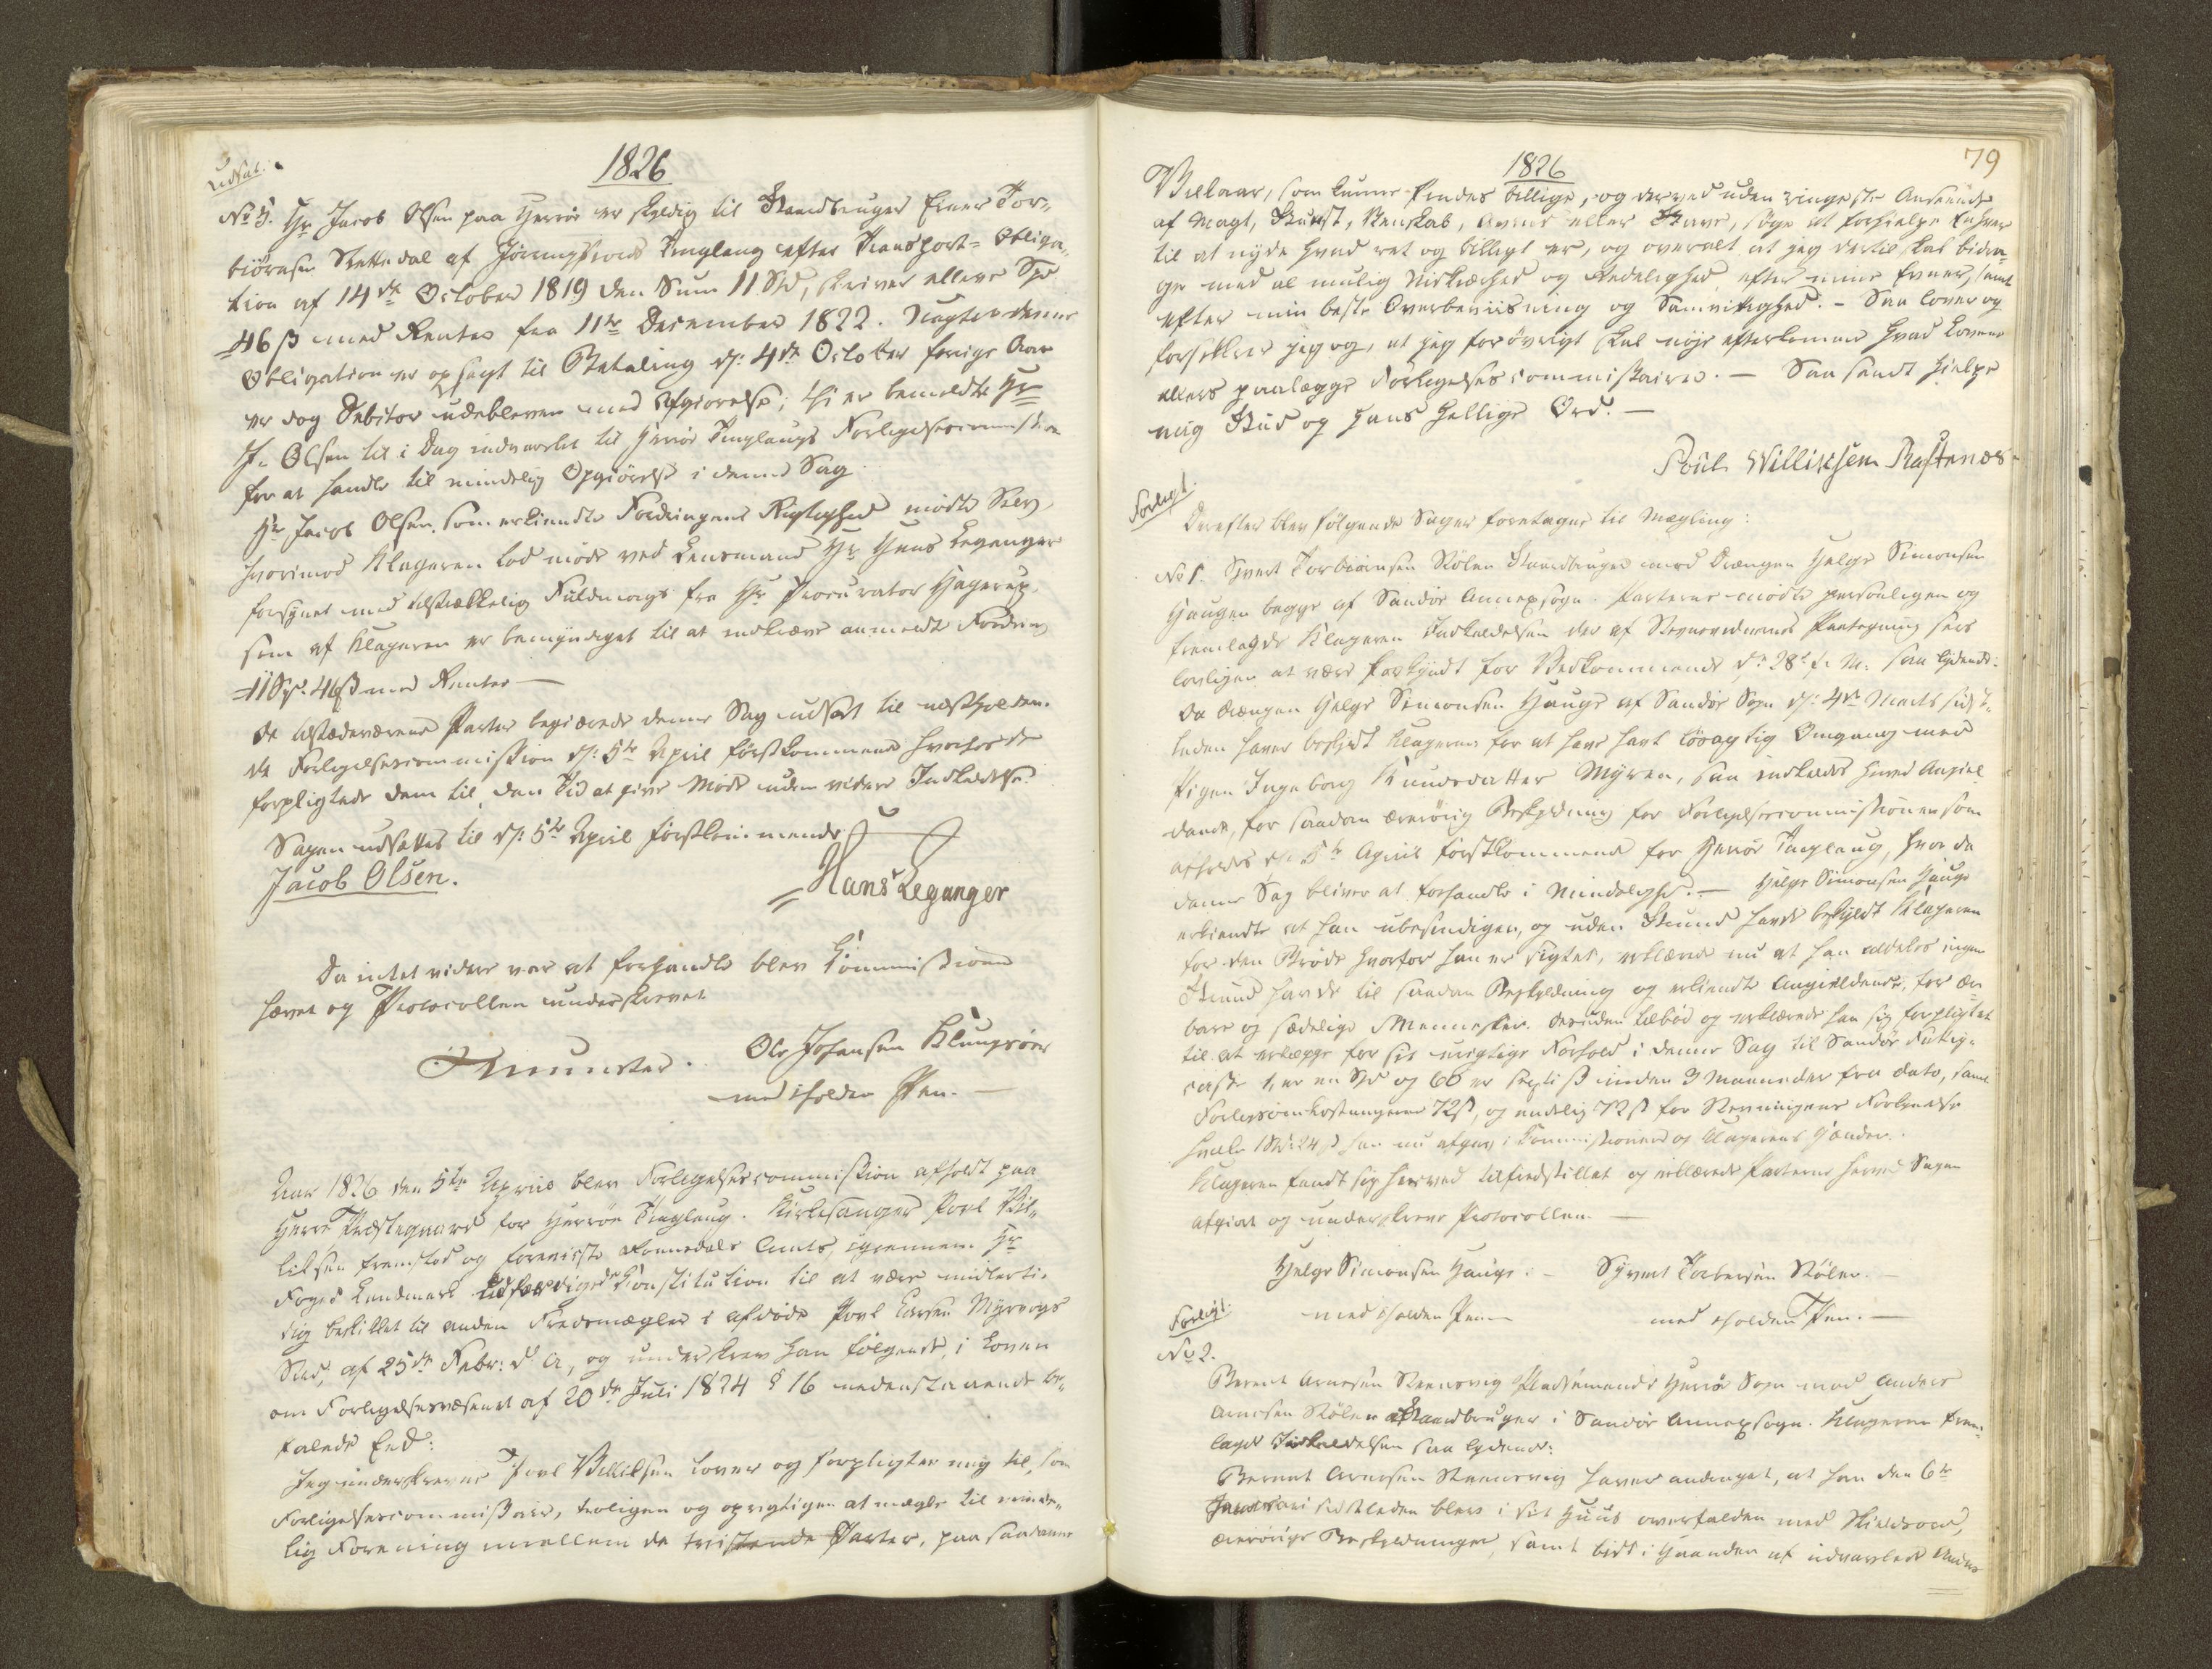 1826
Udsat.
No 5. Hr Jacob Olsen paa Herrøe er skyldig til Gaardbruger Einer Tor-
biørnsen Sættedal af Tinglaug efter Transport-Obliga-
tion af 14de October 1819 den Sum 11 Spd, skriver elleve Spd
46 ß med Renter fra 11te December 1822. Uagtet denne
Obligation er opsagt til Betaling d: 4de October forrige Aar
er dog Debitor udebleven med Afgiørelse; thi er bemeldte Hr
J. Olsen til i Dag indvarslet til Herrøe Tinglaugs Forligelsescommission
for at handle til mindelig Opgiørelse i denne Sag.
Hr Jacob Olsen, som erkiendte Fordringens Rigtighed mødte Selv,
hvorimod Klageren lod møde ved Lensmand Hr Hans Leganger
forsynet med tilstrækkelig Fuldmagt fra Hr Procurator Hagerup,
som af Klageren er bemyndiget til at indkræve anmeldte Fordring
11 Spd. 46 ß med Renter —
De tilstædeværende Parter begiærede denne Sag udsat til næstholden-
de Forligelsescommission d: 5te April førstkommende hvorfor de
forpligtede dem til, den Tid at give Møde uden videre Indkaldelse.
Sagen udsættes til d: 5te April førstkommende
Jacob Olsen.
Hans Leganger
Da intet videre var at forhandle blev Commissionen
hævet og Protocollen underskrevet
Ole Johansen Klungsøer
med iholden Pen. —
Aar 1826 den 5te April blev Forligelsescommission afholdt paa
Herrø Præstegaard for Herrøe Tinglaug. Kirkesanger Poul Vil-
liksen fremstod og foreviste Romsdals Amts, igiennem Hr
Foged Landmark udfærdigede Constitution til at være midlerti-
dig beskikket til anden Fredsmægler i afdøde Poul Larsen Myrvogs
Sted, af 25de Febr: d. A., og underskrev han følgende, i Loven
om Forligelsesvæsenet af 20de Juli 1824 § 16 nedenstaaende be-
falede Eed:
Jeg underskrevne Poul Villiksen lover og forpligter mig til, som
Forligelsescommissair, troligen og oprigtigen at mægle til minde-
lig Forening mellem de tvistende Parter, paa saadanne
1826
79
Vilkaar, som kunne findes billige, og derved uden ringeste Anseende
af Magt, Gunst, Venskab, Avind eller Gave, søge at forhielpe Enhver
til at nyde hvad ret og billigt er, og overalt at jeg dertil skal bidra-
ge med al mulig Nidkiærhed og Redelighed efter mine Evner, samt
efter min beste Overbeviisning og Samvittighed. – Saa lover og
forsikkrer jeg og, at jeg forøvrigt skal nøje efterkomme hvad Lovene
ellers paalægge Forligelsescommissairer. — Saa sandt hielpe
mig Gud og hans hellige Ord. —
Poul Williksen Rastenæs.
Forligt.
Derefter blev følgende Sager foretagne til Mægling:
No 1. Syvert Torbiørnsen Stølen Gaardbruger imod Drengen Helge Simonsen
Haugen begge af Sandøe Annexsogn. Parterne mødte personligen og
fremlagde Klageren Indkaldelsen der af Stevnevidnernes Paategning sees
lovligen at være forkyndt for Vedkommende d: 28de f. M. saa lydende:
Da Drengen Helge Simonsen Hauge af Sandøe Sogn d: 4de Marts sidst-
leden haver beskyldt Klageren for at have havt løsagtig Omgang med
Pigen Ingeborg Knudsdatter Myren, saa indkaldes herved Angiel-
dende, for saadan ærerørig Beskyldning for Forligelsescommissionen som
afholdes d: 5te April førstkommende for Herrøe Tinglaug, hvor da
denne Sag bliver at forhandle i Mindelighed. — Helge Simonsen Hauge
erkiendte at han ubesindigen, og uden Grund havde beskyldt Klageren
for den Brøde hvorfor han er sigtet, erklærede nu at han aldeles ingen
Grund havde til saadan Beskyldning og erkiendte Angieldende, for ær-
bare og sædelige Mennesker. Desuden tilbød og erklærede han sig forpligtet
til at erlægge for sit urigtige Forhold i denne Sag til Sandøe Fattig-
casse 1, er en Spd og 60 er sexti ß inden 3 Maaneder fra Dato, samt
Forligsomkostningerne 72 ß, og endelig 72 ß for Stevningens Forkyndelse
hvilke 1 Spd: 24 ß han nu afgav i Commissionens og Klagerens Hænder.
Klageren fandt sig herved tilfredsstillet og erklærede Parterne herved Sagen
afgiort og underskreve Protocollen. —
Helge Simonsen Hauge. – Syvert Torbersen Stølen. –
med iholden Pen – med iholden Pen. —
Forligt.
No 2.
Berent Arnesen Steensvig Pladsemand i Herrøe Sogn mod Anders
Arnesen Stølen Gaardbruger i Sandøe Annexsogn. Klageren frem-
lagde Indkaldelsen saa lydende:
Berent Arnesen Steensvig haver andraget, at han den 6te
Januari sidstleden blev i sit Huus overfalden med Skieldsord,
ærerørige Beskyldninger, samt bidt i Haanden af indvarslede Anders